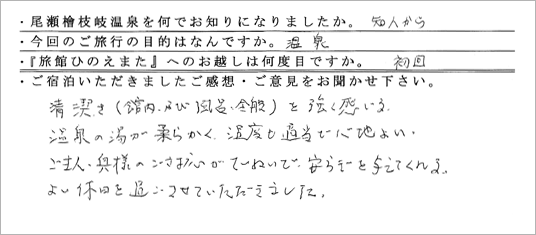 ・尾瀬檜枝岐温泉を何でお知りになりましたか。 知人から
・今回のご旅行の目的はなんですか。 温泉
・『旅館ひのえまた』へのお越しは何度目ですか。 初回
・ご宿泊いただきましたご感想・ご意見をお聞かせ下さい。
清潔さ(館内及び風呂全般)を強く感じる。
温泉の湯が柔らかく、温度も適当で心地よい。
ご主人、奥様の がていねいで、安らぎを与えてくれる。
よい休日を過ごさせていただきました。